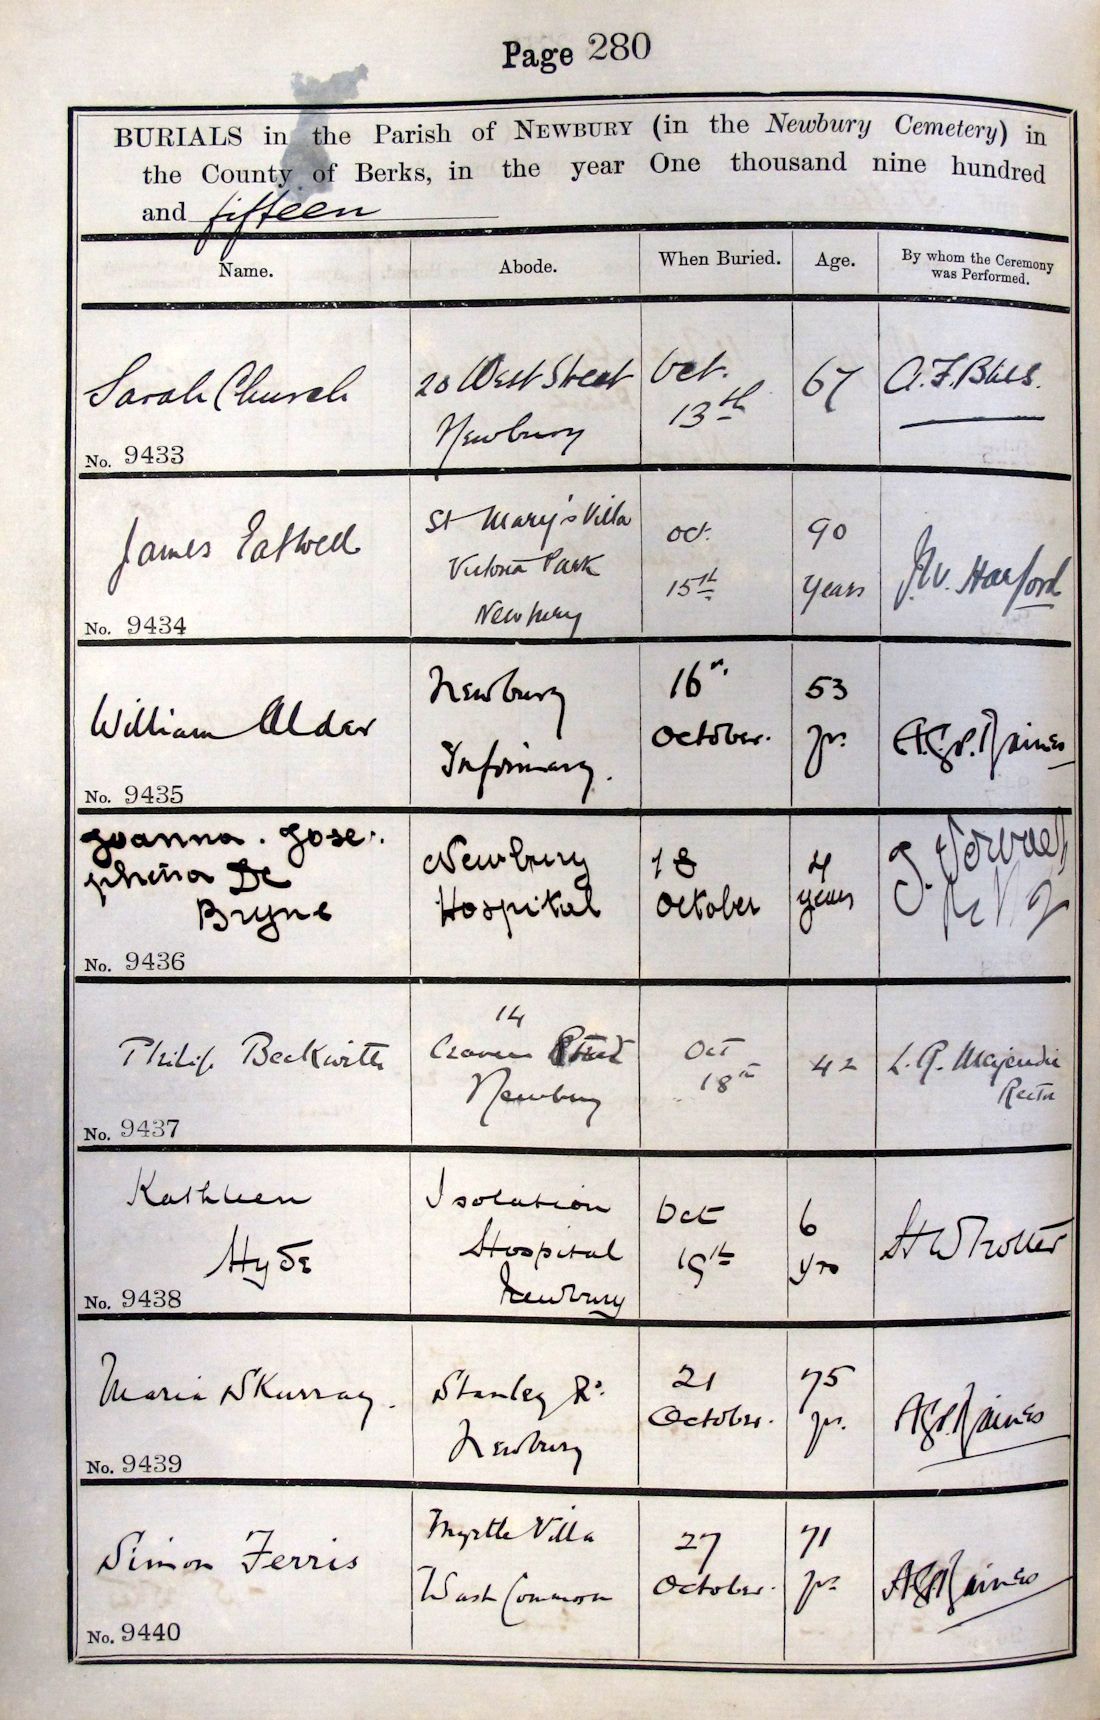 Page 280
BURIALS in the Parish of NEWBURY (in the Newbury Cemetery) in
the County of Berks, in the year One thousand nine hundred
and fifteen
Name.
Abode.
When Buried.
Age.
By whom the Ceremony
was Performed.
Sarah Church
No. 9433
20 West Street
Newbury
Oct.
13th
67
James Eatwell
No. 9434
St Mary's Villa
Victoria Park
Newbury
Oct.
15th
90
Years
Harford
William Alder
No. 9435
Newbury
Infirmary.
16th
October.
53
yrs.
Joanna. Jose-
phina De
Bryne
No. 9436
Newbury
Hospital
18
October
4
years
Philip Beckwith
No. 9437
14
Craven Street
Newbury
Oct
18th
42
L. G. Majendie
Rector
Kathleen
Hyde
No. 9438
Isolation
Hospital
Newbury
Oct
19th
6
yrs
Trotter
Maria Skurray.
No. 9439
Stanley Rd.
Newbury
21
October.
75
yrs.
Simon Ferris
No. 9440
Myrtle Villa
Wash Common
27
October.
71
yrs.